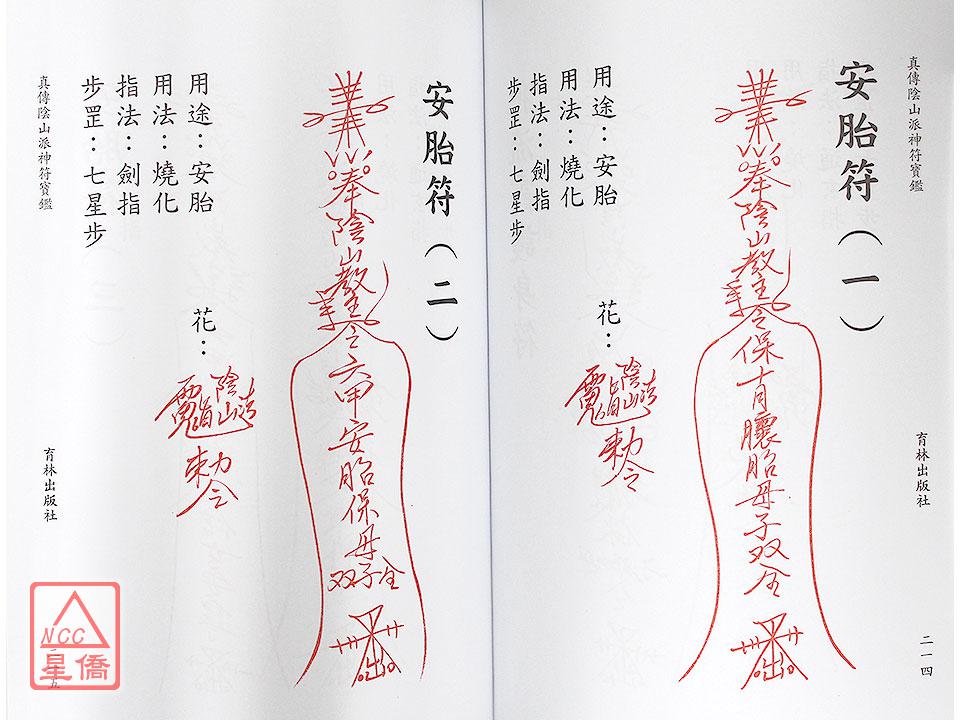 真傳陰山派神符寶鑑
安胎符(一)
奉陰山教主令保十月胎母子双全
用途：安胎
用法：燒化
指法：劍指
步罡：七星步
花：
陰山
勅令
育林出版社
二一四
安胎符(二)
奉陰山教主令六甲安胎保母子双全
用途：安胎
用法：燒化
指法：劍指
步罡：七星步
花：
陰山
勅令
真傳陰山派神符寶鑑
育林出版社
NCC
星僑